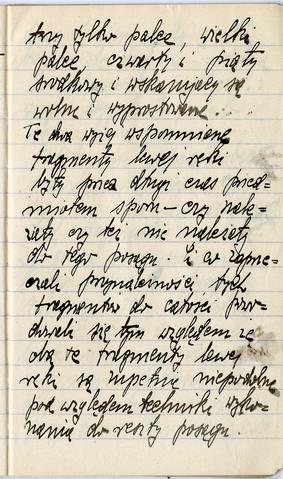 trzy tylko palce, wielki
palec, czwarty i piąty
środkowy i wskazujący są
wolne i wyprostowane...
Te dwa wyżej wspomniane
fragmenty lewej ręki
były przez długi czas przed-
miotem sporu – czy nale-
żały czy też nie należały
do tego posągu. I co zaprze-
czali przynależności tych
fragmentów do całości powo-
dowali się tym względem że
oba te fragmenty lewej
ręki są zupełnie niepodobne
pod względem techniki wyko-
nania do reszty posągu.